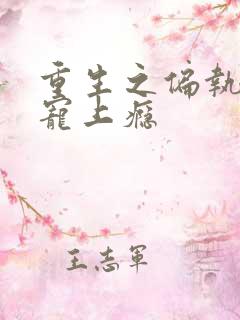 重生之偏執
寵上癮
王志軍